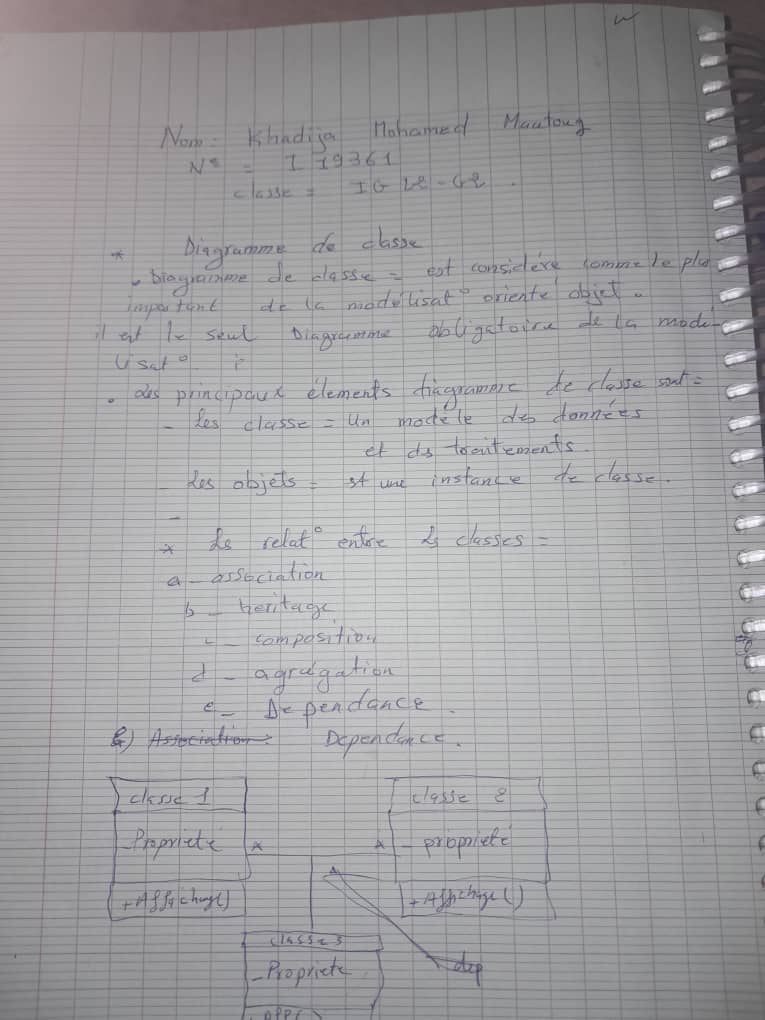 Nom: Khadija Mohamed Maatoug
N° = I 19361
classe = IG L2-G2.
* Diagramme de classe
• Diagramme de classe = est considére comme le plus
important de la modélisat° orienté objet.
il est le seul Diagramme obligatoire de la modé-
lisat° :
• Les principaux élements diagramme de classe sont =
- Les classe = Un modèle des données
et ds traitements.
- Les objets = st une instance de classe.
-
* Ls relat° entre ls classes =
a - association
b - heritage
c - composition
d - agrégation
e - Dependance.
e) Association: Dependance.
classe 1 classe 2
- Proprieté * * - propriété
+ Affichage() + Affichage()
classe 3
- Propriete dep